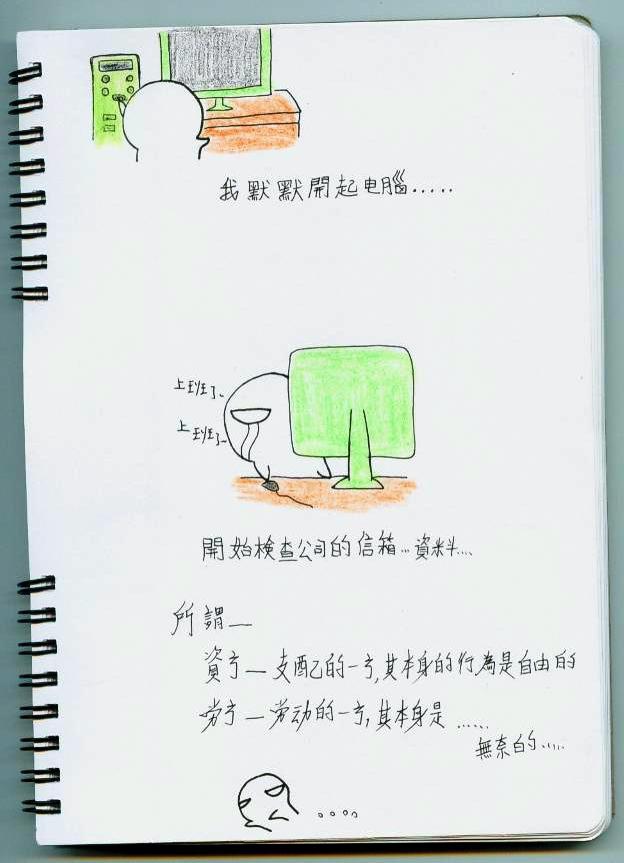 我默默開起电腦.....
上班了~
上班了~
開始檢查公司的信箱...資料....
所謂—
資方—支配的一方,其本身的行為是自由的
劳方—劳动的一方,其本身是......
無奈的.....
。。。。